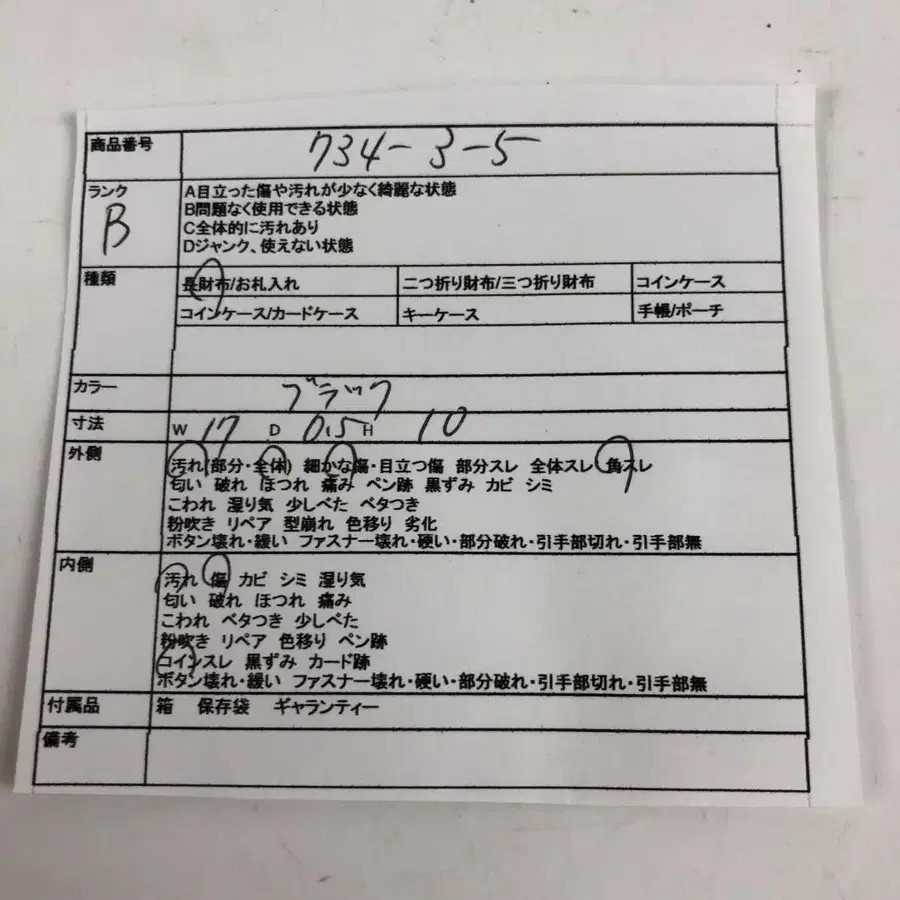 商品番号 734-3-5
ランク B
A目立った傷や汚れが少なく綺麗な状態
B問題なく使用できる状態
C全体的に汚れあり
Dジャンク、使えない状態
種類 長財布/お札入れ 二つ折り財布/三つ折り財布 コインケース
コインケース/カードケース キーケース 手帳/ポーチ
カラー ブラック
寸法 W 17 D 0.5 H 10
外側
汚れ(部分・全体) 細かな傷・目立つ傷 部分スレ 全体スレ 角スレ
匂い 破れ ほつれ 痛み ペン跡 黒ずみ カビ シミ
こわれ 湿り気 少しべた ベタつき
粉吹き リペア 型崩れ 色移り 劣化
ボタン壊れ・緩い ファスナー壊れ・硬い・部分破れ・引手部切れ・引手部無
内側
汚れ 傷 カビ シミ 湿り気
匂い 破れ ほつれ 痛み
こわれ ベタつき 少しべた
粉吹き リペア 色移り ペン跡
コインスレ 黒ずみ カード跡
ボタン壊れ・緩い ファスナー壊れ・硬い・部分破れ・引手部切れ・引手部無
付属品 箱 保存袋 ギャランティー
備考